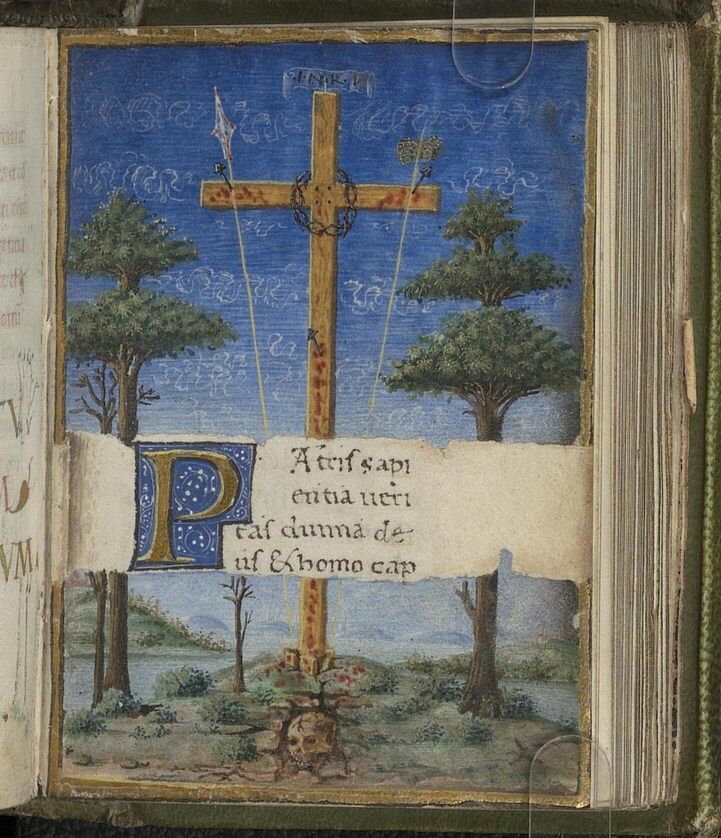 I·N·R·I
PAtris sapi
entia ueri
tas diuina de
us & homo cap